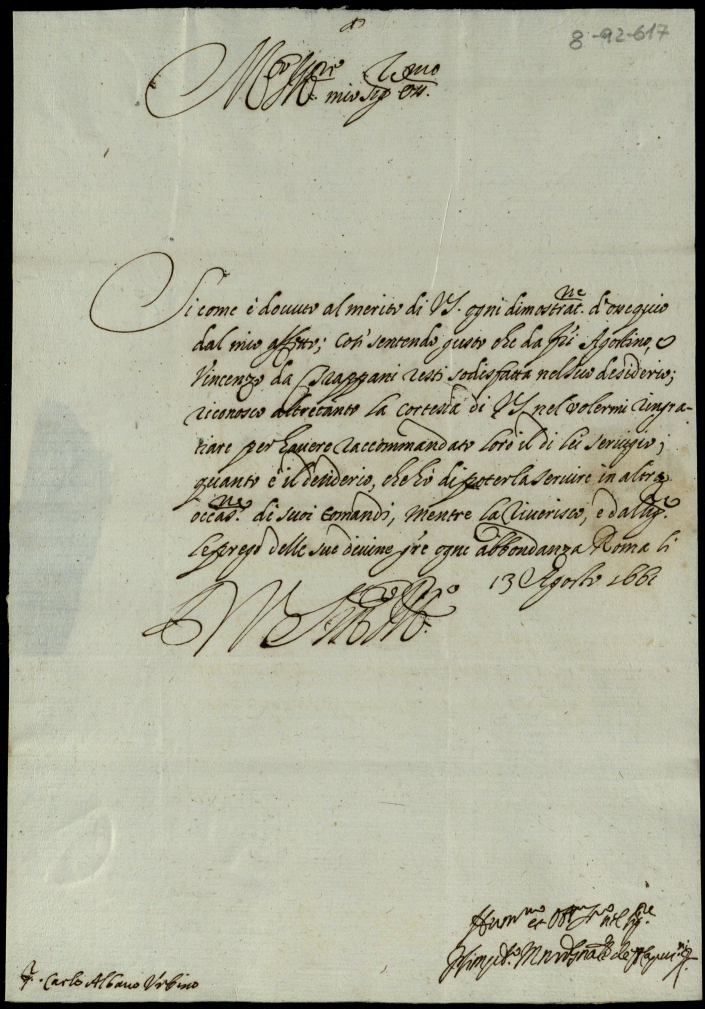 8-92-617
mio Sig.r
Si come è douuto al merito di VS. ogni dimostrat.ne d'ossequio
dal mio affetto; così sentendo gusto che da fra Agostino, e
Vincenzo da Trappani resti sodisfatta nel suo desiderio;
riconosco altretanto la cortesia di VS nel volermi ringra-
tiare per hauere raccommandato loro il di lei seruigio;
quanto è il desiderio, che hò di poterla seruire in altra
occas.ne di suoi Comandi, mentre la riuerisco, e dal
le prego delle sue diuine gre ogni abbondanza Roma li
13 Agosto 1661
Carlo Albano Vrbino